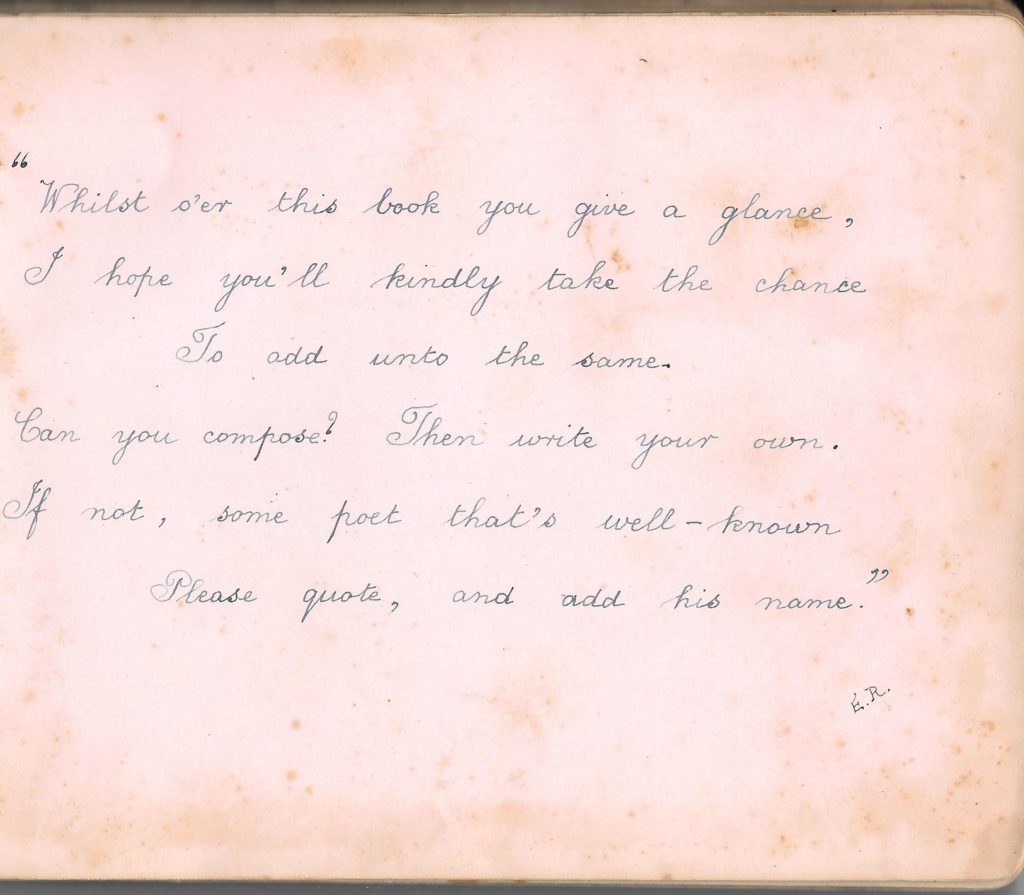 “Whilst o'er this book you give a glance,
I hope you'll kindly take the chance
To add unto the same.
Can you compose? Then write your own.
If not, some poet that's well-known
Please quote, and add his name.”
E.R.